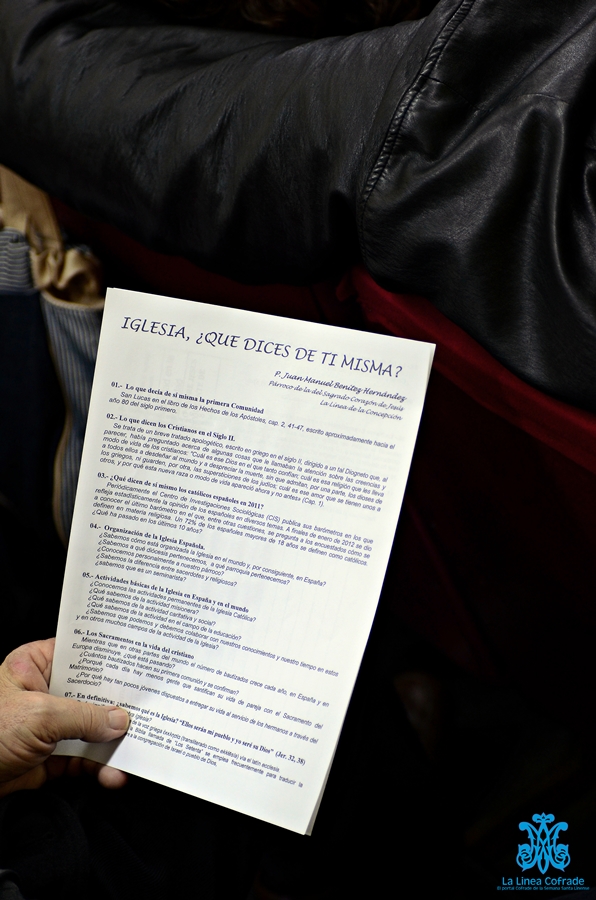 IGLESIA, ¿QUE DICES DE TI MISMA?
P. Juan Manuel Benítez Hernández
Párroco de la del Sagrado Corazón de Jesús
La Línea de la Concepción
01.- Lo que decía de si misma la primera Comunidad
San Lucas en el libro de los Hechos de los Apóstoles, cap. 2, 41-47, escrito aproximadamente hacia el
año 80 del siglo primero.
02.- Lo que dicen los Cristianos en el Siglo II.
Se trata de un breve tratado apologético, escrito en griego en el siglo II, dirigido a un tal Diogneto que, al
parecer, había preguntado acerca de algunas cosas que le llamaban la atención sobre las creencias y
modo de vida de los cristianos: "Cuál es ese Dios en el que tanto confían; cuál es esa religión que les lleva
a todos ellos a desdeñar al mundo y a despreciar la muerte, sin que admitan, por una parte, los dioses de
los griegos, ni guarden, por otra, las supersticiones de los judíos; cuál es ese amor que se tienen unos a
otros, y por qué esta nueva raza o modo de vida apareció ahora y no antes» (Cap. 1).
03.- ¿Qué dicen de si mismo los católicos españoles en 2011?
Periódicamente el Centro de Investigaciones Sociológicas (CIS) publica sus barómetros en los que
refleja estadísticamente la opinión de los españoles en diversos temas. A finales de enero de 2012 se dio
a conocer el último barómetro en el que, entre otras cuestiones, se pregunta a los encuestados cómo se
definen en materia religiosa. Un 72% de los españoles mayores de 18 años se definen como católicos.
¿Qué ha pasado en los últimos 10 años?
04.- Organización de la Iglesia Española.
¿Sabemos cómo está organizada la Iglesia en el mundo y, por consiguiente, en España?
¿Sabemos a qué diócesis pertenecemos, a qué parroquia pertenecemos?
¿Conocemos personalmente a nuestro párroco?
¿Sabemos la diferencia entre sacerdotes y religiosos?
¿sabemos que es un seminarista?
05.- Actividades básicas de la Iglesia en España y en el mundo
¿Conocemos las actividades permanentes de la Iglesia Católica?
¿Qué sabemos de la actividad misionera?
¿Qué sabemos de la actividad caritativa y social?
¿Qué sabemos de la actividad en el campo de la educación?
¿Sabemos que podemos y debemos colaborar con nuestros conocimientos y nuestro tiempo en estos
y en otros muchos campos de la actividad de la Iglesia?
06.- Los Sacramentos en la vida del cristiano
Mientras que en otras partes del mundo el número de bautizados crece cada año, en España y en
Europa disminuye, ¿qué está pasando?
¿Cuántos bautizados hacen su primera comunión y se confirman?
¿Porqué cada día hay menos gente que santifican su vida de pareja con el Sacramento del
Matrimonio?
¿Por qué hay tan pocos jóvenes dispuestos a entregar su vida al servicio de los hermanos a través del
Sacerdocio?
07.- En definitiva: ¿sabemos qué es la Iglesia? "Ellos serán mi pueblo y yo seré su Dios" (Jer. 32, 38)
Iglesia?
de la voz griega (transliterado como ekklēsía) vía el latín ecclesia
Biblia llamada de "Los Setenta" se emplea frecuentemente para traducir la
a la congregación de Israel o pueblo de Dios.
La Linea Cofrade
El portal Cofrade de la Semana Santa Linense